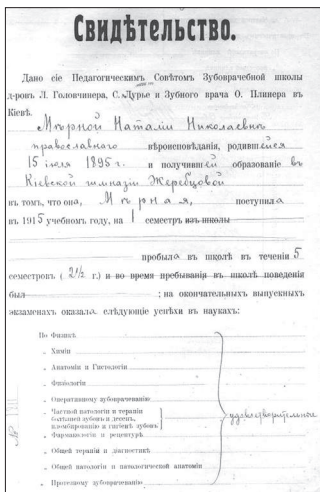 Свидѣтельство.
Дано сіе Педагогическимъ Совѣтомъ Зубоврачебной школы
д-ровъ Л. Головчинера, С. Лурье и Зубного врача О. Плинера въ
Кіевѣ.
Мѣрной Наталіи Николаевнѣ
православнаго вѣроисповѣданія, родившейся
15 іюля 1895 г. и получившей образованіе въ
Кіевской гимназіи Жеребцовой
въ томъ, что она, Мѣрная, поступила
въ 1915 учебномъ году, на 1 семестръ изъ школы
пробыла въ школѣ въ теченіи 5
семестровъ (2½ г.) и во время пребыванія въ школѣ поведенія
былъ ; на окончательныхъ выпускныхъ
экзаменахъ оказала слѣдующіе успѣхи въ наукахъ:
По Физикѣ
„ Химіи
„ Анатоміи и Гистологіи
„ Физіологіи
„ Оперативному зубоврачеванію
„ Частной патологіи и терапіи
болѣзней зубовъ и десенъ,
пломбированію и гигіенѣ зубовъ
удовлетворительные
„ Фармакологіи и рецептурѣ
„ Общей терапіи и діагностикѣ
„ Общей патологіи и патологической анатоміи
„ Протезному зубоврачеванію